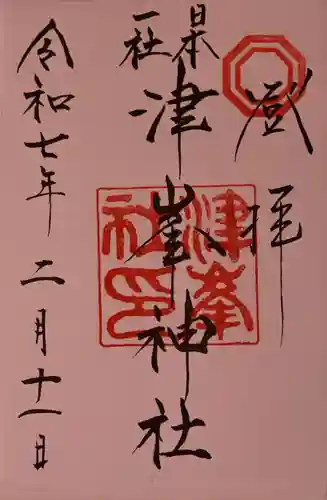 登拝
日本
一社
津峯神社
津峯
社印
令和七年二月十一日